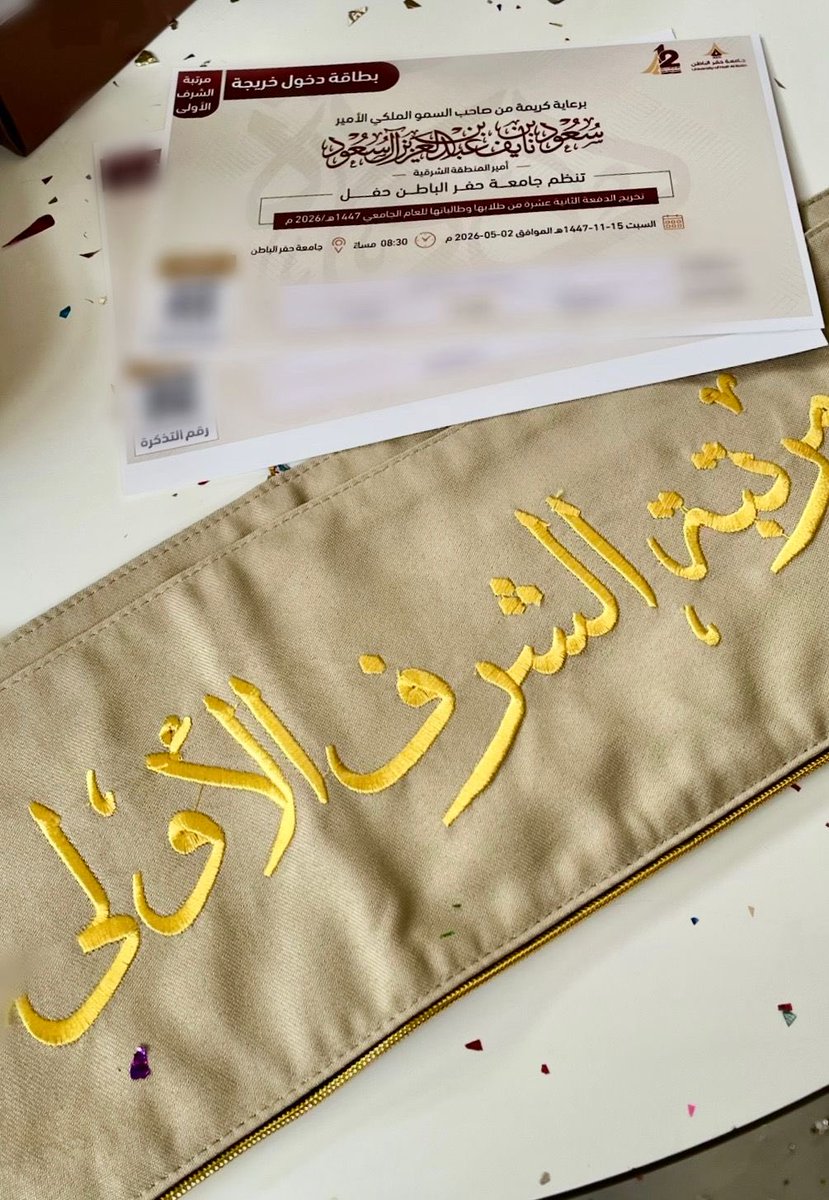 بطاقة دخول خريجة
مرتبة
الشرف
الأولى
12
جامعة حفر الباطن
University of Hafr Al Batin
برعاية كريمة من صاحب السمو الملكي الأمير
سعود بن نايف بن عبدالعزيز آل سعود
أمير المنطقة الشرقية
تنظم جامعة حفر الباطن حفل
تخريج الدفعة الثانية عشرة من طلابها وطالباتها للعام الجامعي 1447هـ/2026 م
السبت 15-11-1447هـ الموافق 02-05-2026 م
08:30 مساءً
جامعة حفر الباطن
رقم التذكرة
مرتبة الشرف الأولى